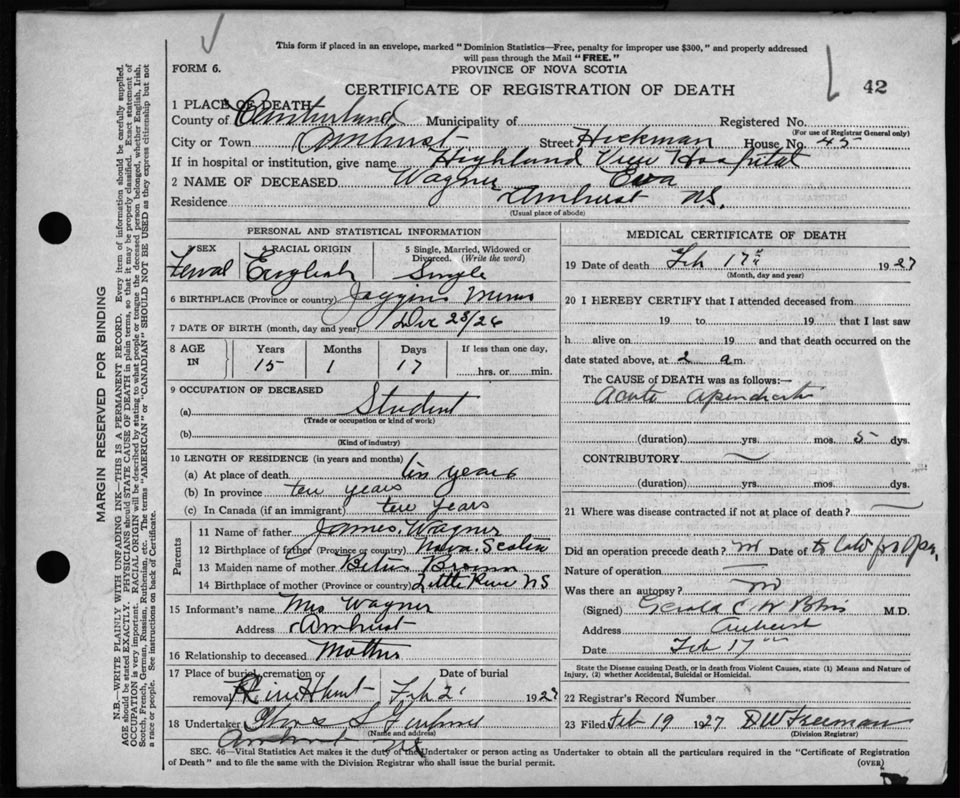 This form if placed in an envelope, marked "Dominion Statistics—Free, penalty for improper use $300," and properly addressed
will pass through the Mail "FREE."
FORM 6.
PROVINCE OF NOVA SCOTIA
42
CERTIFICATE OF REGISTRATION OF DEATH
1 PLACE OF DEATH
County of Cumberland Municipality of Registered No.
(For use of Registrar General only)
City or Town Amherst Street Hickman House No. 45
If in hospital or institution, give name Highland View Hospital
2 NAME OF DECEASED Wagner Eva
Residence Amherst N.S.
(Usual place of abode)
PERSONAL AND STATISTICAL INFORMATION
3 SEX 4 RACIAL ORIGIN 5 Single, Married, Widowed or
Divorced. (Write the word)
Femal English Single
6 BIRTHPLACE (Province or country) Joggins Mines
7 DATE OF BIRTH (month, day and year) Dec 23/26
8 AGE IN Years Months Days If less than one day,
15 1 17 hrs. or min.
9 OCCUPATION OF DECEASED
(a) Student
(Trade or occupation or kind of work)
(b)
(Kind of industry)
10 LENGTH OF RESIDENCE (in years and months)
(a) At place of death ten years
(b) In province ten years
(c) In Canada (if an immigrant) ten years
Parents
11 Name of father James Wagner
12 Birthplace of father (Province or country) Nova Scotia
13 Maiden name of mother Brown
14 Birthplace of mother (Province or country) Little River NS
15 Informant's name Mrs Wagner
Address Amherst
16 Relationship to deceased Mother
17 Place of burial, cremation or Date of burial
removal Feb 2 1927
18 Undertaker
(Name and address)
Amherst NS
MEDICAL CERTIFICATE OF DEATH
19 Date of death Feb 17th 1927
(Month, day and year)
20 I HEREBY CERTIFY that I attended deceased from
19 to 19 that I last saw
h alive on 19 and that death occurred on the
date stated above, at 2 a.m.
The CAUSE of DEATH was as follows:—
Acute Apendicitis
(duration) yrs. mos. 5 dys.
CONTRIBUTORY
(duration) yrs. mos. dys.
21 Where was disease contracted if not at place of death?
Did an operation precede death? no Date of to late for Oper.
Nature of operation
Was there an autopsy? no
(Signed) Gerald C W M.D.
Address Amherst
Date Feb 17th
State the Disease causing Death, or in death from Violent Causes, state (1) Means and Nature of
Injury, (2) whether Accidental, Suicidal or Homicidal.
22 Registrar's Record Number
23 Filed Feb 19 1927 Freeman
(Division Registrar)
SEC. 46—Vital Statistics Act makes it the duty of the Undertaker or person acting as Undertaker to obtain all the particulars required in the "Certificate of Registration
of Death" and to file the same with the Division Registrar who shall issue the burial permit.
(OVER)
MARGIN RESERVED FOR BINDING
N.B.—WRITE PLAINLY WITH UNFADING INK—THIS IS A PERMANENT RECORD. Every item of information should be carefully supplied.
AGE should be stated EXACTLY. PHYSICIANS should STATE CAUSE OF DEATH in plain terms, so that it may be properly classified. Exact statement of
OCCUPATION is very important. RACIAL ORIGIN will be described by stating to what people or tongue the deceased person belonged, whether English, Irish,
Scotch, French, German, Russian, Ruthenian, etc. The terms "AMERICAN" or "CANADIAN" SHOULD NOT BE USED as they express citizenship but not
a race or people. See instructions on back of Certificate.